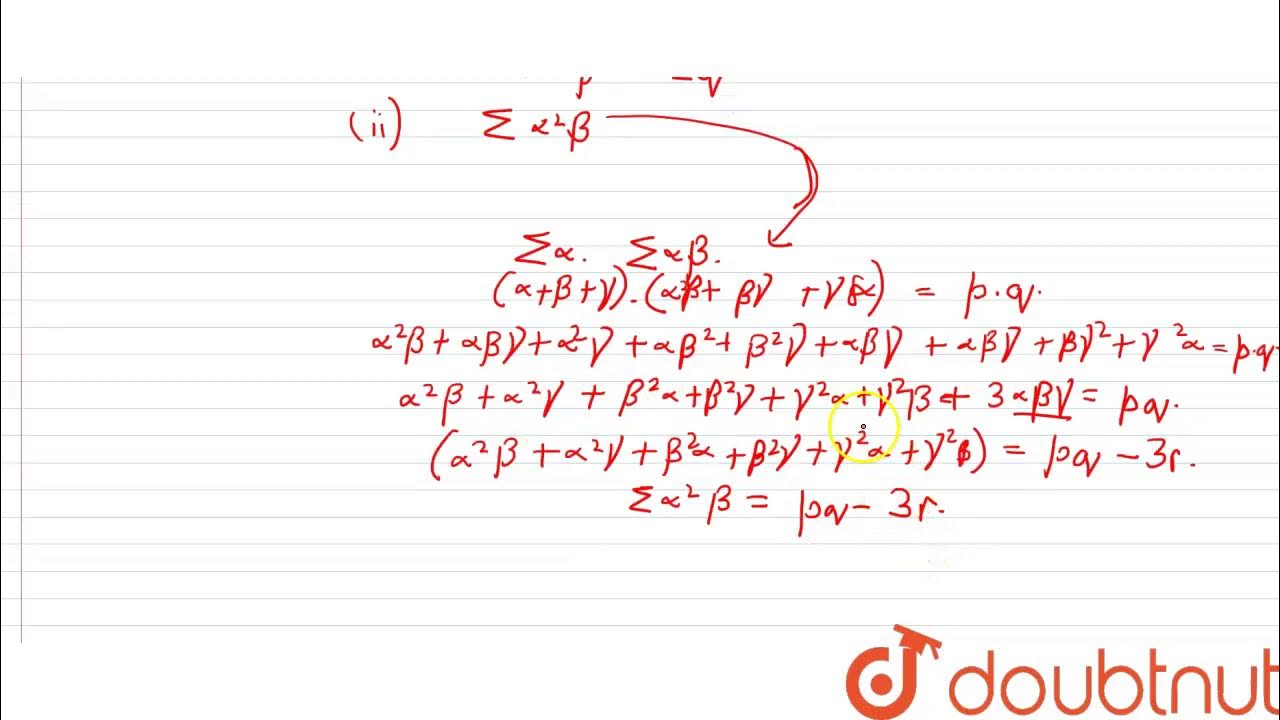 (ii) Σ α²β
Σα. Σαβ.
(α+β+γ).(αβ+ βγ +γα) = p.q.
α²β + αβγ + α²γ + αβ² + β²γ + αβγ + αβγ + βγ² + γ²α = p.q
α²β + α²γ + β²α + β²γ + γ²α + γ²β + 3αβγ = pq.
(α²β + α²γ + β²α + β²γ + γ²α + γ²β) = pq - 3r.
Σα²β = pq - 3r.
doubtnut